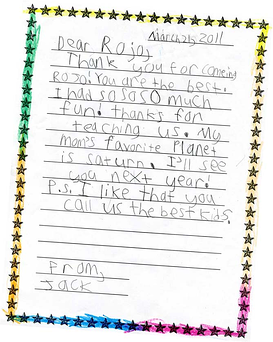 March 25 2011
Dear Rojo,
Thank you for comeing
Rojo! You are the best.
I had so so so much
fun! thanks for
teaching us. My
mom's favorite Planet
is saturn. I'll see
you next year!
P.s. I like that you
call us the best kids.
From,
Jack